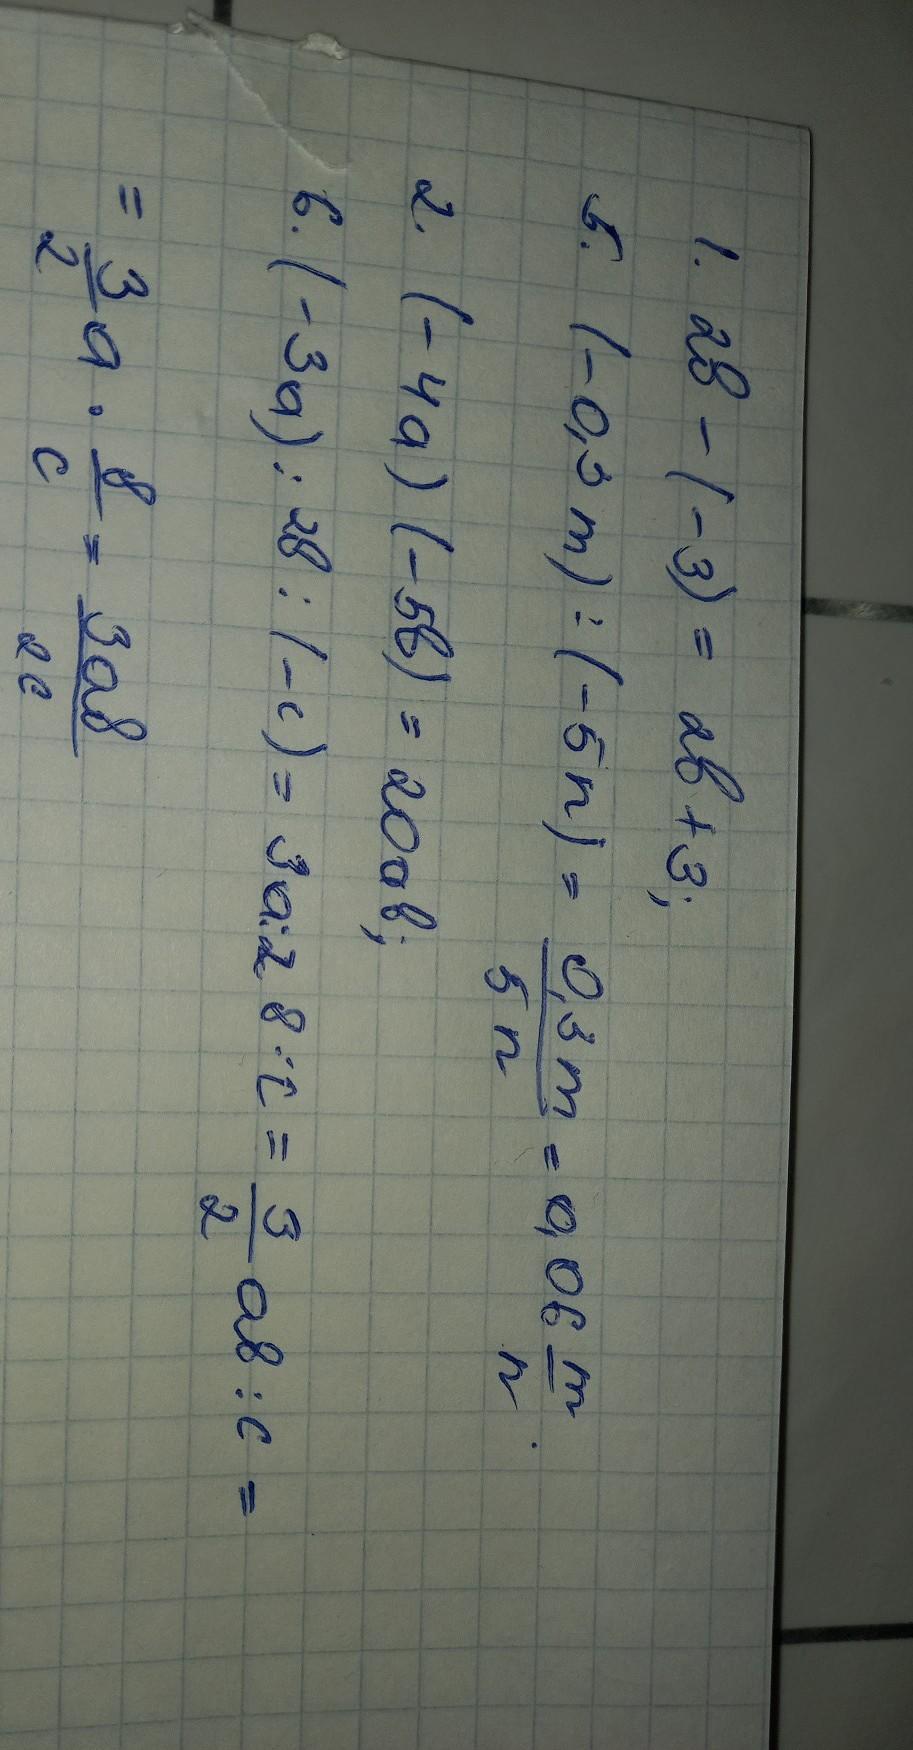 1. 2в - (-3) = 2в + 3;
5. (-0,3 m) : (-5 n) = 0,3m/5n = 0,06 m/n.
2. (-4a) (-5в) = 20aв;
6. (-3a) : 2в : (-c) = 3a:2 в :c = 3/2 aв : c =
= 3/2 a · в/c = 3aв/2c